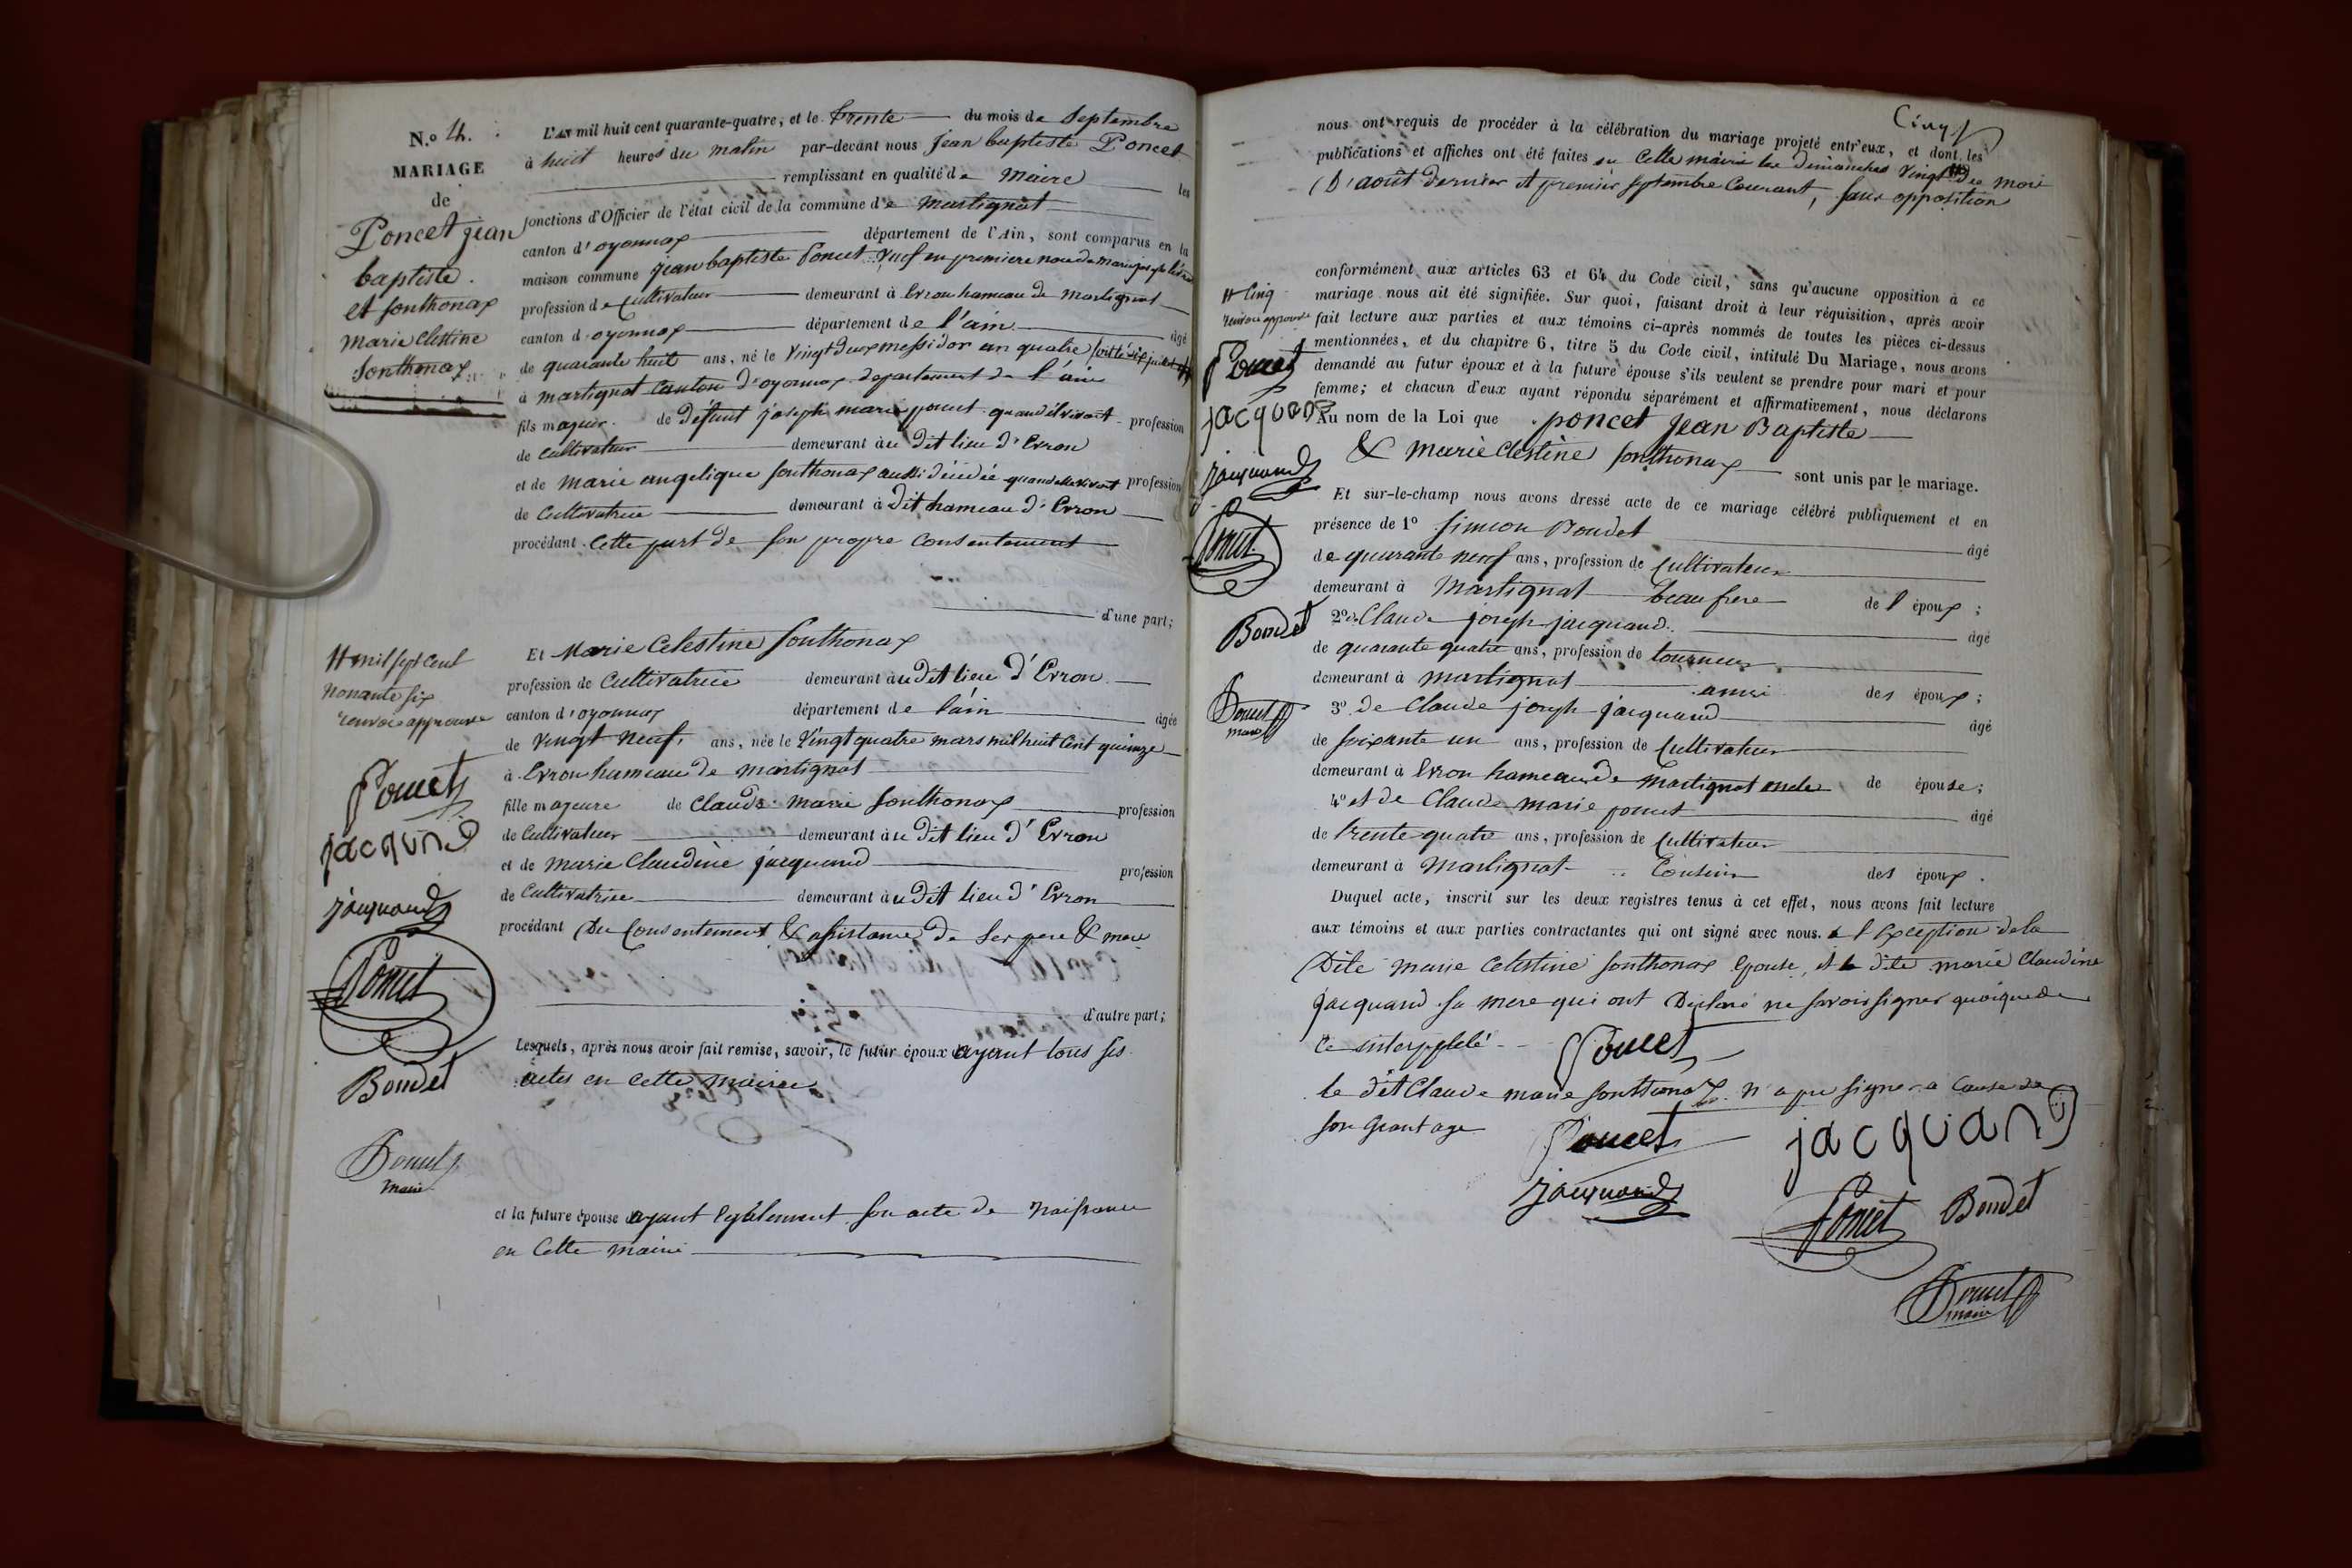 N.o 4.
MARIAGE
de
Poncet jean
baptiste.
et sonthonax
marie Clestine
Sonthonax
L'AN mil huit cent quarante-quatre, et le trente du mois de Septembre
à huit heures du matin par-devant nous Jean baptiste Poncet
remplissant en qualité de Maire les
fonctions d'Officier de l'état civil de la commune de Martignat
canton d'oyonnax département de l'Ain, sont comparus en la
maison commune jean baptiste Poncet Veuf en premiere noce de
profession de Cultivateur demeurant à Evron hameau de Martignat
canton d'oyonnax département de l'ain âgé
de quarante huit ans, né le Vingt deux messidor an quatre
à Martignat Canton d'oyonnax departement de l'ain
fils majeur de défunt joseph marie poncet quand il vivait profession
de Cultivateur demeurant au Dit lieu d'Evron
et de marie angelique sonthonax aussi décédée quand elle vivait profession
de Cultivatrice demeurant à Dit hameau d'Evron
procédant Cette part de son propre Consentement
d'une part;
# mil sept Cent
nonante six
renvoie approuvé
Poncet
jacquand
jacquand
Poncet
Bondet
Poncet
maire
Et Marie Celestine Sonthonax
profession de Cultivatrice demeurant au Dit lieu d'Evron
canton d'oyonnax département de l'ain âgée
de Vingt Neuf ans, née le Vingt quatre mars mil huit Cent quinze
à Evron hameau de martignat
fille majeure de Claude marie Sonthonax profession
de Cultivateur demeurant au Dit lieu d'Evron
et de marie Claudine jacquand profession
de Cultivatrice demeurant au Dit lieu d'Evron
procédant Du Consentement & assistance de Ses pere & mere
d'autre part;
Lesquels, après nous avoir fait remise, savoir, le futur époux ayant tous ses
actes en cette mairie
et la future épouse ayant Egalement son acte de Naissance
en Cette mairie
Cinq
nous ont requis de procéder à la célébration du mariage projeté entr'eux, et dont les
publications et affiches ont été faites en Cette mairie les dimanches Vingt # Du mois
D'août dernier et premier Septembre Courant, sans opposition
# Cinq
renvoie approuvé
Poncet
jacquand
jacquand
Poncet
Bondet
Poncet
maire
conformément aux articles 63 et 64 du Code civil, sans qu'aucune opposition à ce
mariage nous ait été signifiée. Sur quoi, faisant droit à leur réquisition, après avoir
fait lecture aux parties et aux témoins ci-après nommés de toutes les pièces ci-dessus
mentionnées, et du chapitre 6, titre 5 du Code civil, intitulé Du Mariage, nous avons
demandé au futur époux et à la future épouse s'ils veulent se prendre pour mari et pour
femme; et chacun d'eux ayant répondu séparément et affirmativement, nous déclarons
Au nom de la Loi que poncet Jean Baptiste
& Marie Clestine Sonthonax sont unis par le mariage.
Et sur-le-champ nous avons dressé acte de ce mariage célébré publiquement et en
présence de 1o Simeon Bondet âgé
de quarante neuf ans, profession de Cultivateur
demeurant à Martignat beau frere de l'époux;
2o de Claude joseph jacquand âgé
de quarante quatre ans, profession de tourneur
demeurant à martignat amis des époux;
3o de Claude joseph jacquand âgé
de soixante un ans, profession de Cultivateur
demeurant à Evron hameau de Martignat oncle de épouse;
4o et de Claude marie poncet âgé
de trente quatre ans, profession de Cultivateur
demeurant à Martignat Cousin des époux.
Duquel acte, inscrit sur les deux registres tenus à cet effet, nous avons fait lecture
aux témoins et aux parties contractantes qui ont signé avec nous. à l'Exception de la
Dite marie Celestine Sonthonax Epouse, et la dite marie Claudine
jacquand sa mere qui ont Declaré ne savoir signer quoique de
Ce interpelée
Poncet
le dit Claude marie Sonthonax n'a pu signer a Cause de
son grant age
Poncet
jacquand
jacquand
Poncet
Bondet
Poncet
maire